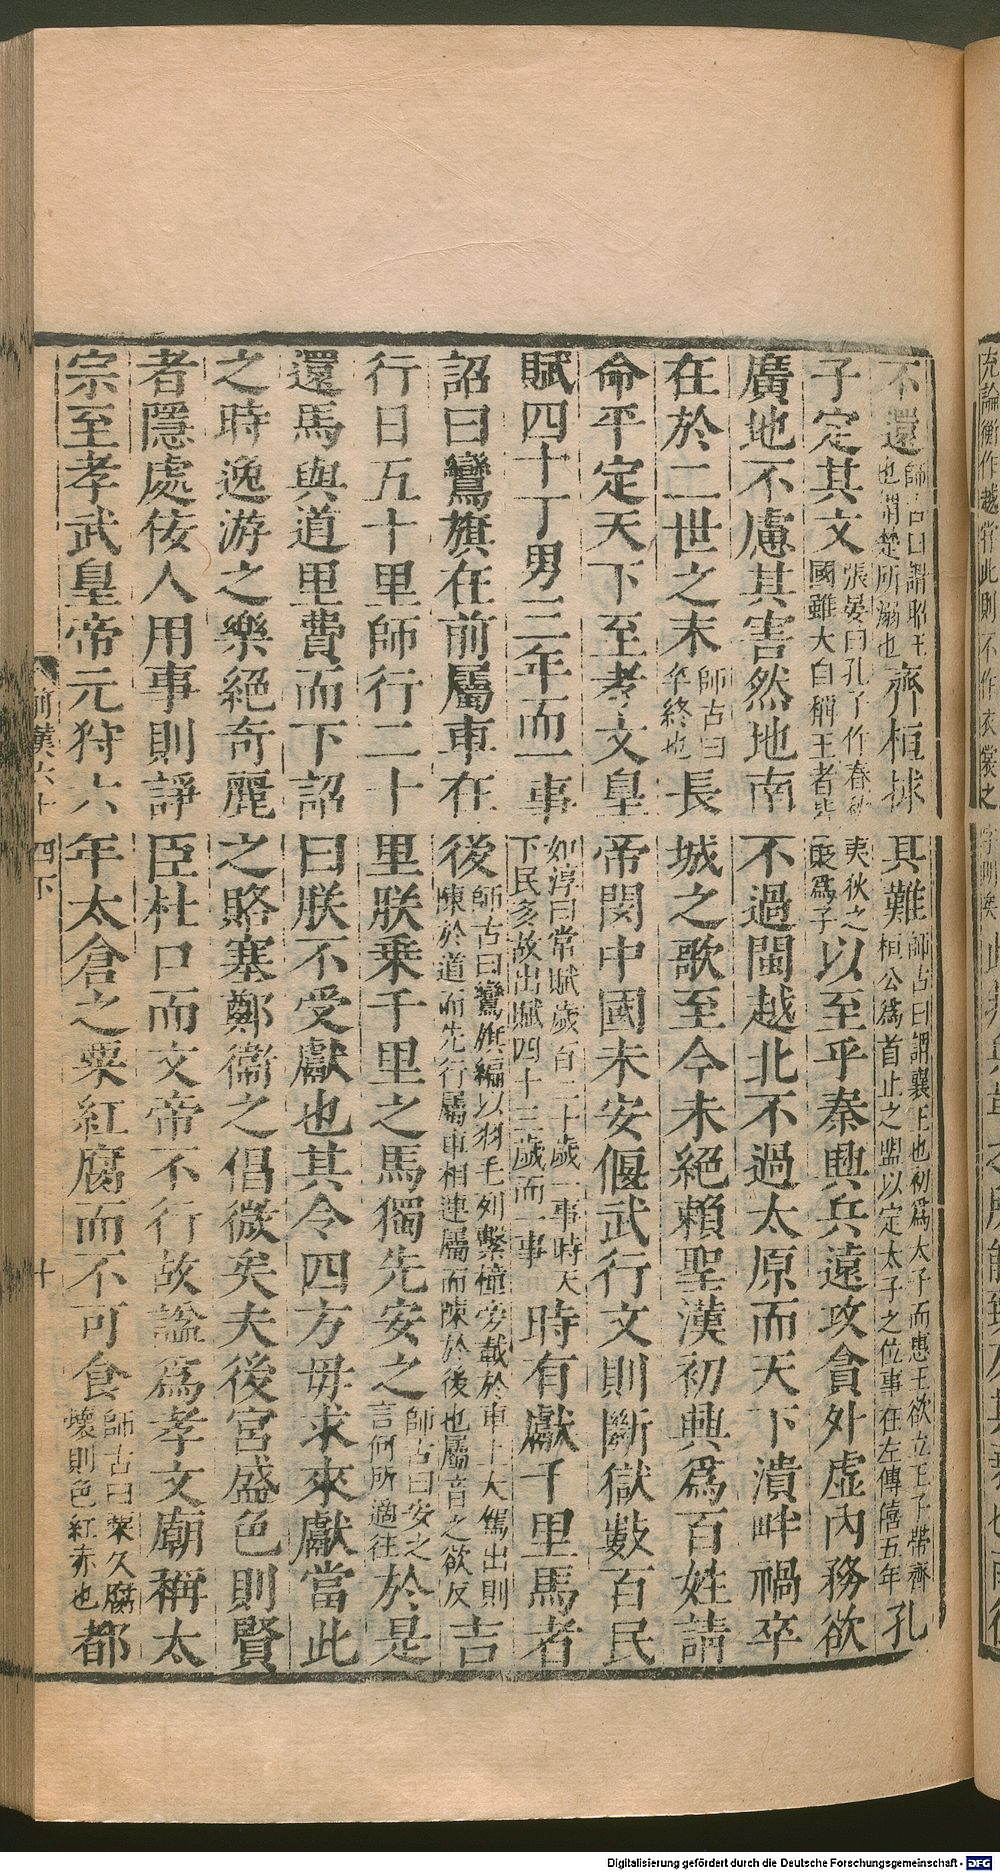 不還師古曰謂昭王也謂楚所溺也齊桓捄其難師古曰謂襄王也初為太子而惠王欲立王子帶齊桓公為首止之盟以定太子之位事在左傳僖五年孔
子定其文張晏曰孔子作春秋夷狄之國雖大自稱王者皆貶為子以至乎秦興兵遠攻貪外虛內務欲
廣地不慮其害然地南不過閩越北不過太原而天下潰畔禍卒
在於二世之末師古曰卒終也長城之歌至今未絕賴聖漢初興爲百姓請
命平定天下至孝文皇帝閔中國未安偃武行文則斷獄數百民
賦四十丁男三年而一事如淳曰常賦歲百二十歲一事時天下民多故出賦四十三歲而一事時有獻千里馬者
詔曰鸞旗在前屬車在後師古曰鸞旗編以羽毛列繫橦旁載於車上大駕出則陳於道而先行屬車相連屬而陳於後也屬音之欲反吉
行日五十里師行二十里朕乗千里之馬獨先安之師古曰安之言何所適往於是
還馬與道里費而下詔曰朕不受獻也其令四方毋求來獻當此
之時逸游之樂絕奇麗之賂塞鄭衞之倡微矣夫後宮盛色則賢
者隱處佞人用事則諍臣杜口而文帝不行故謚爲孝文廟稱太
宗至孝武皇帝元狩六年太倉之粟紅腐而不可食師古曰粟久腐壞則色紅赤也都
前漢六十四下
十
充論衡作越常此則不作衣裳之
Digitalisierung gefördert durch die Deutsche Forschungsgemeinschaft - DFG